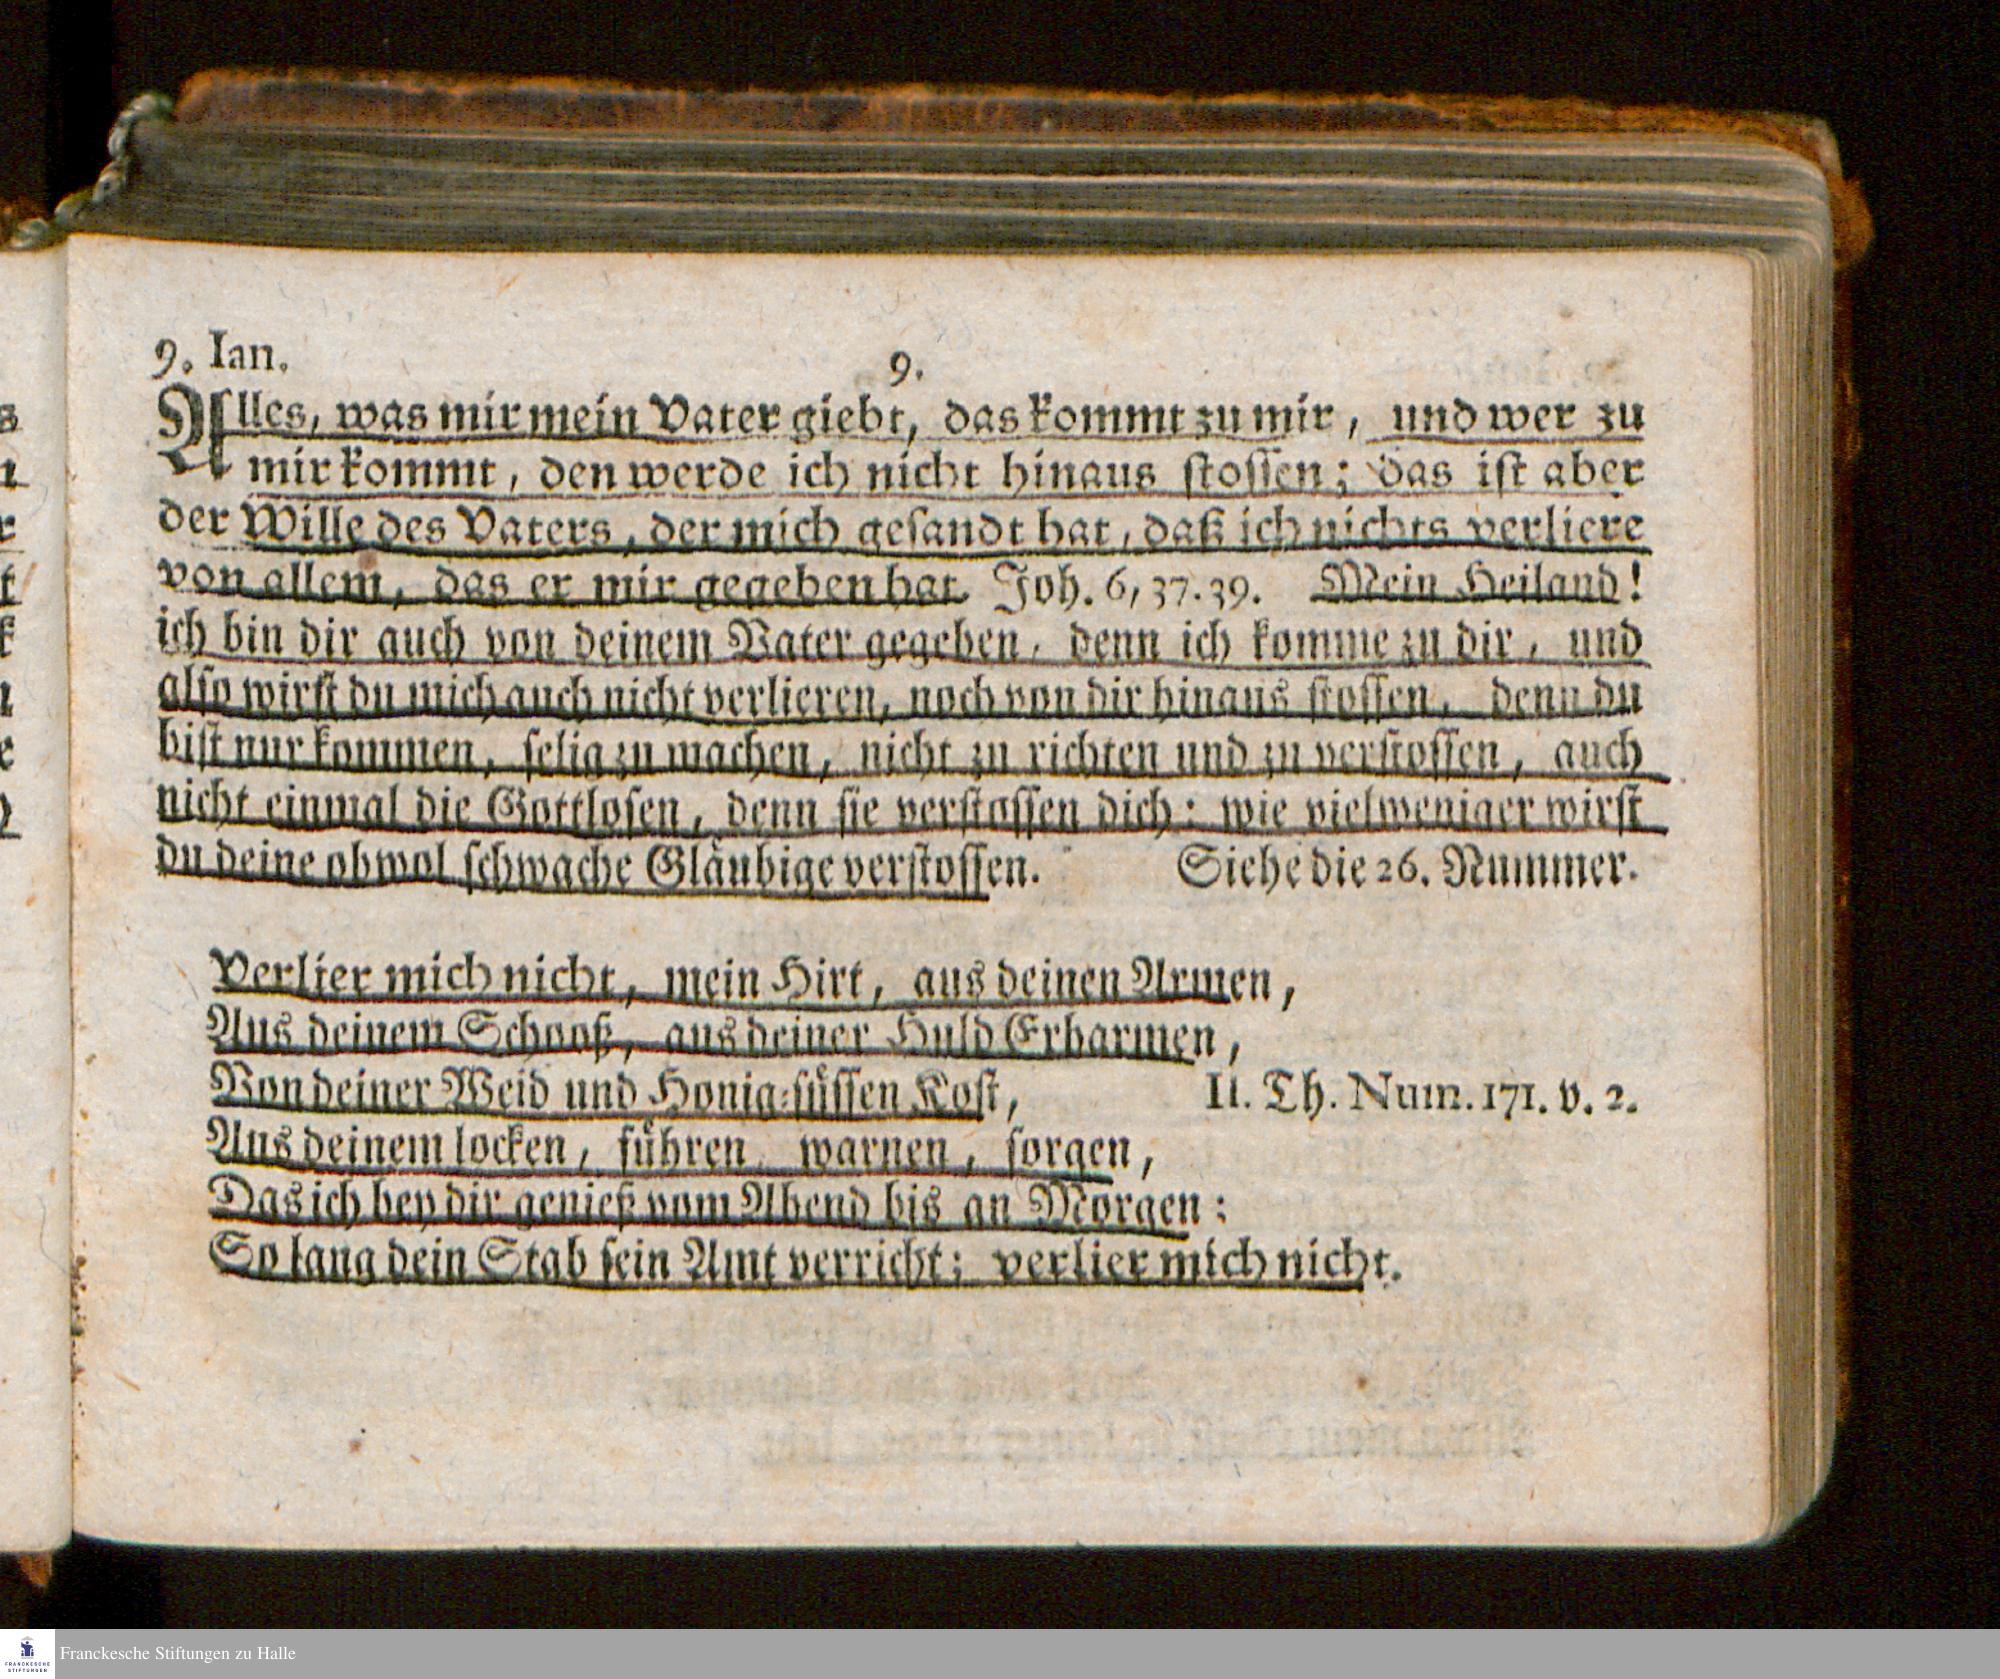 9. Ian.
9.
Alles, was mir mein Vater giebt, das kommt zu mir, und wer zu
mir kommt, den werde ich nicht hinaus stossen; das ist aber
der Wille des Vaters, der mich gesandt hat, daß ich nichts verliere
von allem, das er mir gegeben hat. Joh. 6, 37. 39. Mein Heiland!
ich bin dir auch von deinem Vater gegeben, denn ich komme zu dir, und
also wirst du mich auch nicht verlieren, noch von dir hinaus stossen, denn du
bist nur kommen, selig zu machen, nicht zu richten und zu verstossen, auch
nicht einmal die Gottlosen, denn sie verstossen dich: wie vielweniger wirst
du deine obwol schwache Gläubige verstossen. Siehe die 26. Nummer.
Verlier mich nicht, mein Hirt, aus deinen Armen,
Aus deinem Schooß, aus deiner Huld Erbarmen,
Von deiner Weid und Honig-süssen Kost, II. Th. Num. 171. v. 2.
Aus deinem locken, führen, warnen, sorgen,
Das ich bey dir genieß vom Abend bis an Morgen:
So lang dein Stab sein Amt verricht: verlier mich nicht.
FRANCKESCHE
STIFTUNGEN
Franckesche Stiftungen zu Halle